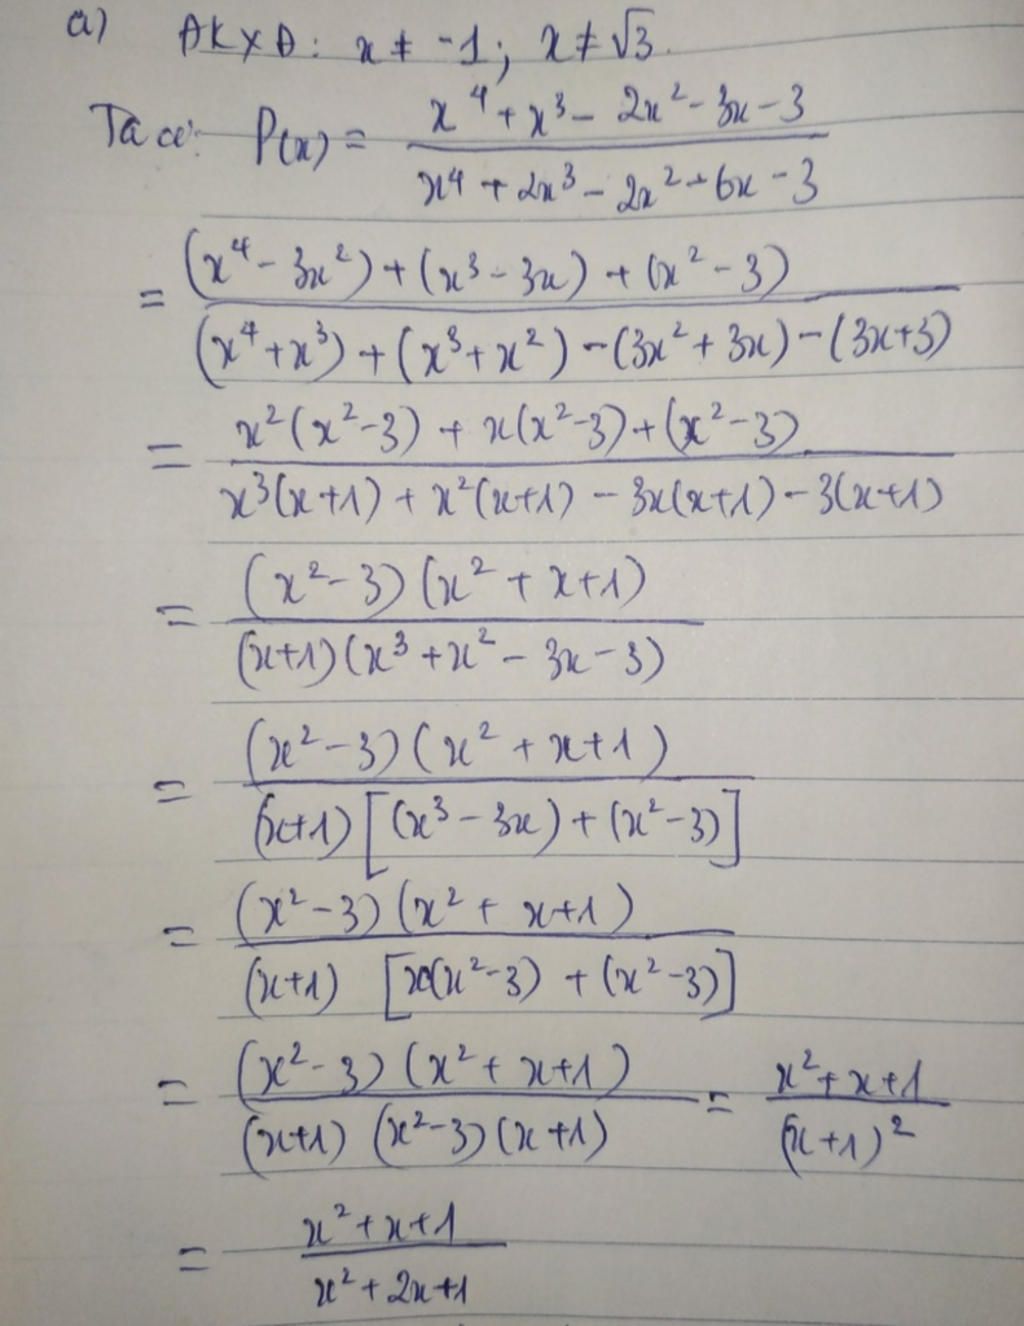 a) ĐKXĐ: x ≠ -1; x ≠ √3.
Ta có: P(x) = (x⁴ + x³ - 2x² - 3x - 3) / (x⁴ + 2x³ - 2x² - 6x - 3)
= ((x⁴ - 3x²) + (x³ - 3x) + (x² - 3)) / ((x⁴ + x³) + (x³ + x²) - (3x² + 3x) - (3x + 3))
= (x²(x² - 3) + x(x² - 3) + (x² - 3)) / (x³(x + 1) + x²(x + 1) - 3x(x + 1) - 3(x + 1))
= ((x² - 3)(x² + x + 1)) / ((x + 1)(x³ + x² - 3x - 3))
= ((x² - 3)(x² + x + 1)) / ((x + 1)[(x³ - 3x) + (x² - 3)])
= ((x² - 3)(x² + x + 1)) / ((x + 1)[x(x² - 3) + (x² - 3)])
= ((x² - 3)(x² + x + 1)) / ((x + 1)(x² - 3)(x + 1)) = (x² + x + 1) / (x + 1)²
= (x² + x + 1) / (x² + 2x + 1)